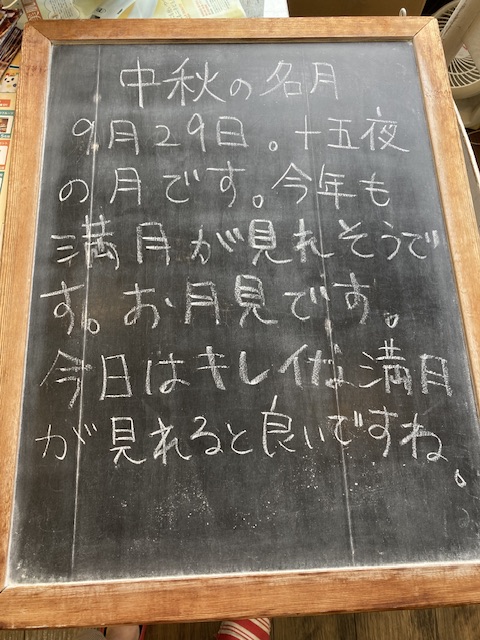 中秋の名月
9月29日。十五夜
の月です。今年も
満月が見れそうで
す。お月見です。
今日はキレイな満月
が見れると良いですね。